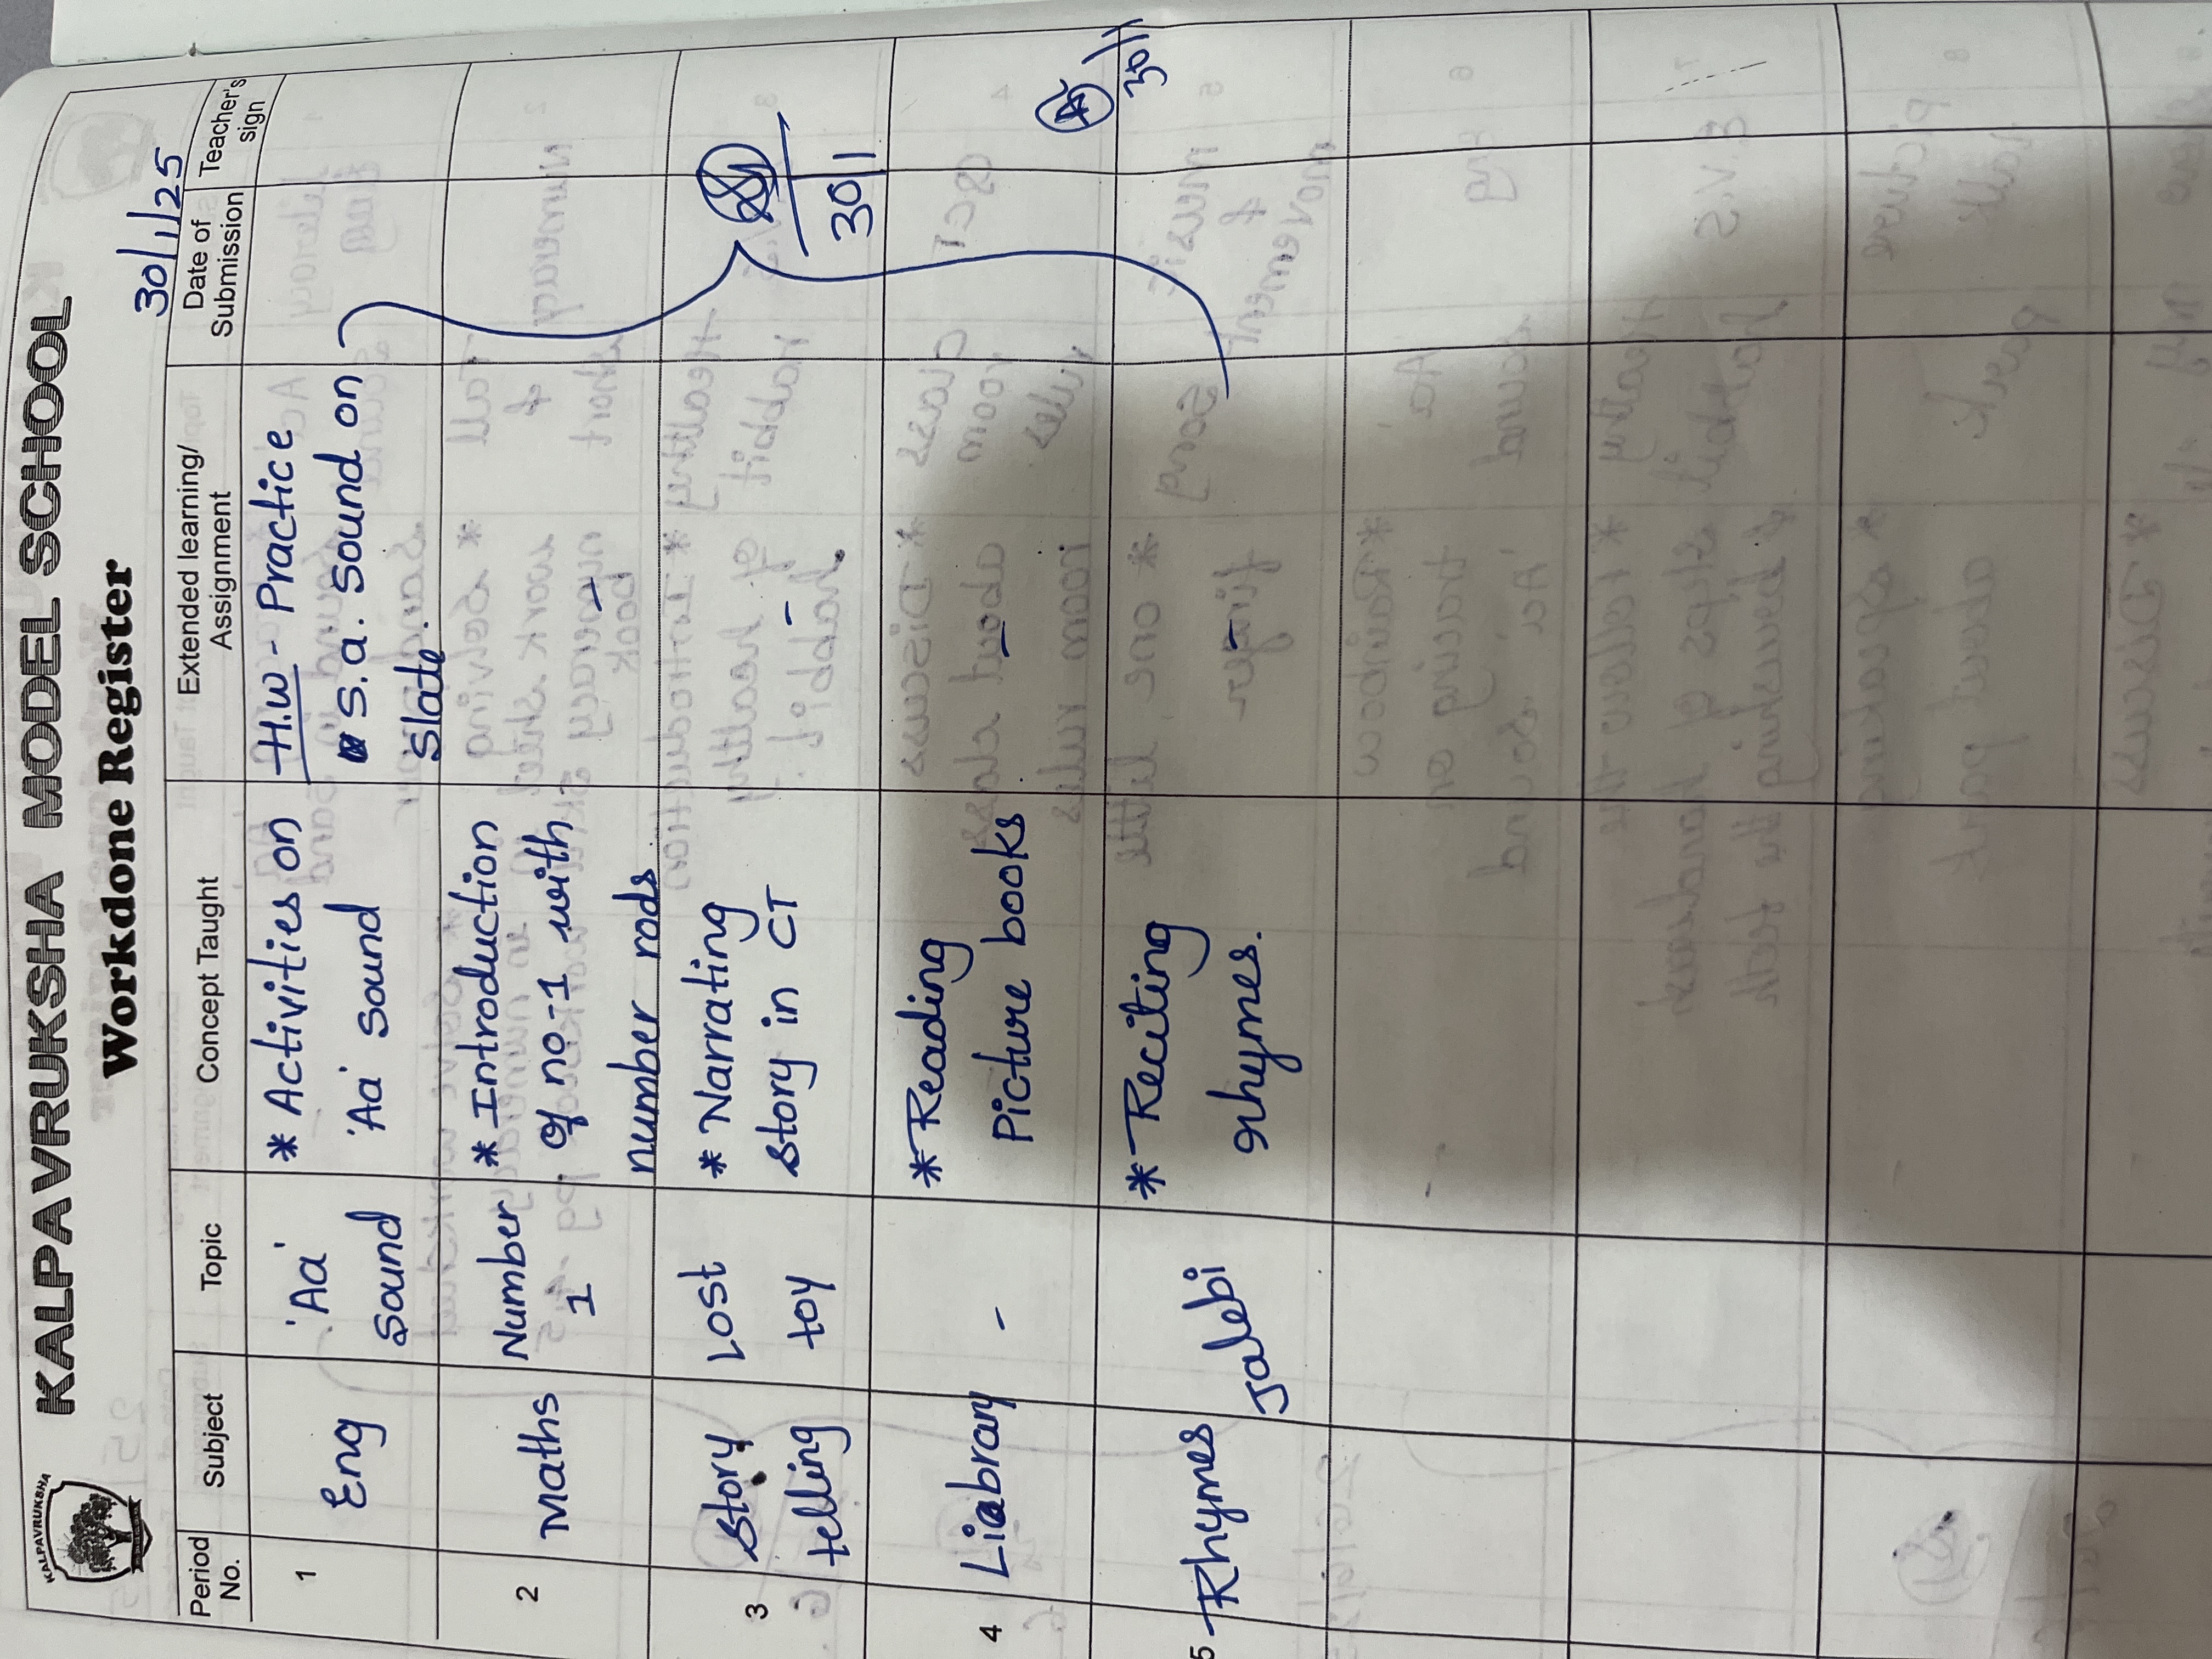 KALPAVRUKSHA
KALPAVRUKSHA MODEL SCHOOL
Workdone Register
30/1/25
Period No.
Subject
Topic
Concept Taught
Extended learning/
Assignment
Date of
Submission
Teacher's
sign
1
Eng
'Aa'
Sound
* Activities on
'Aa' sound
H.W - Practice
s. a. sound on
slate.
2
Maths
Number
1
* Introduction
of no-1 with
number rods
-
3
Story
telling
Lost
toy
* Narrating
story in CT
-
30/1
4
Liabrary
-
* Reading
Picture books
-
30/1
5
Rhymes
Jalebi
* Reciting
rhymes.
-